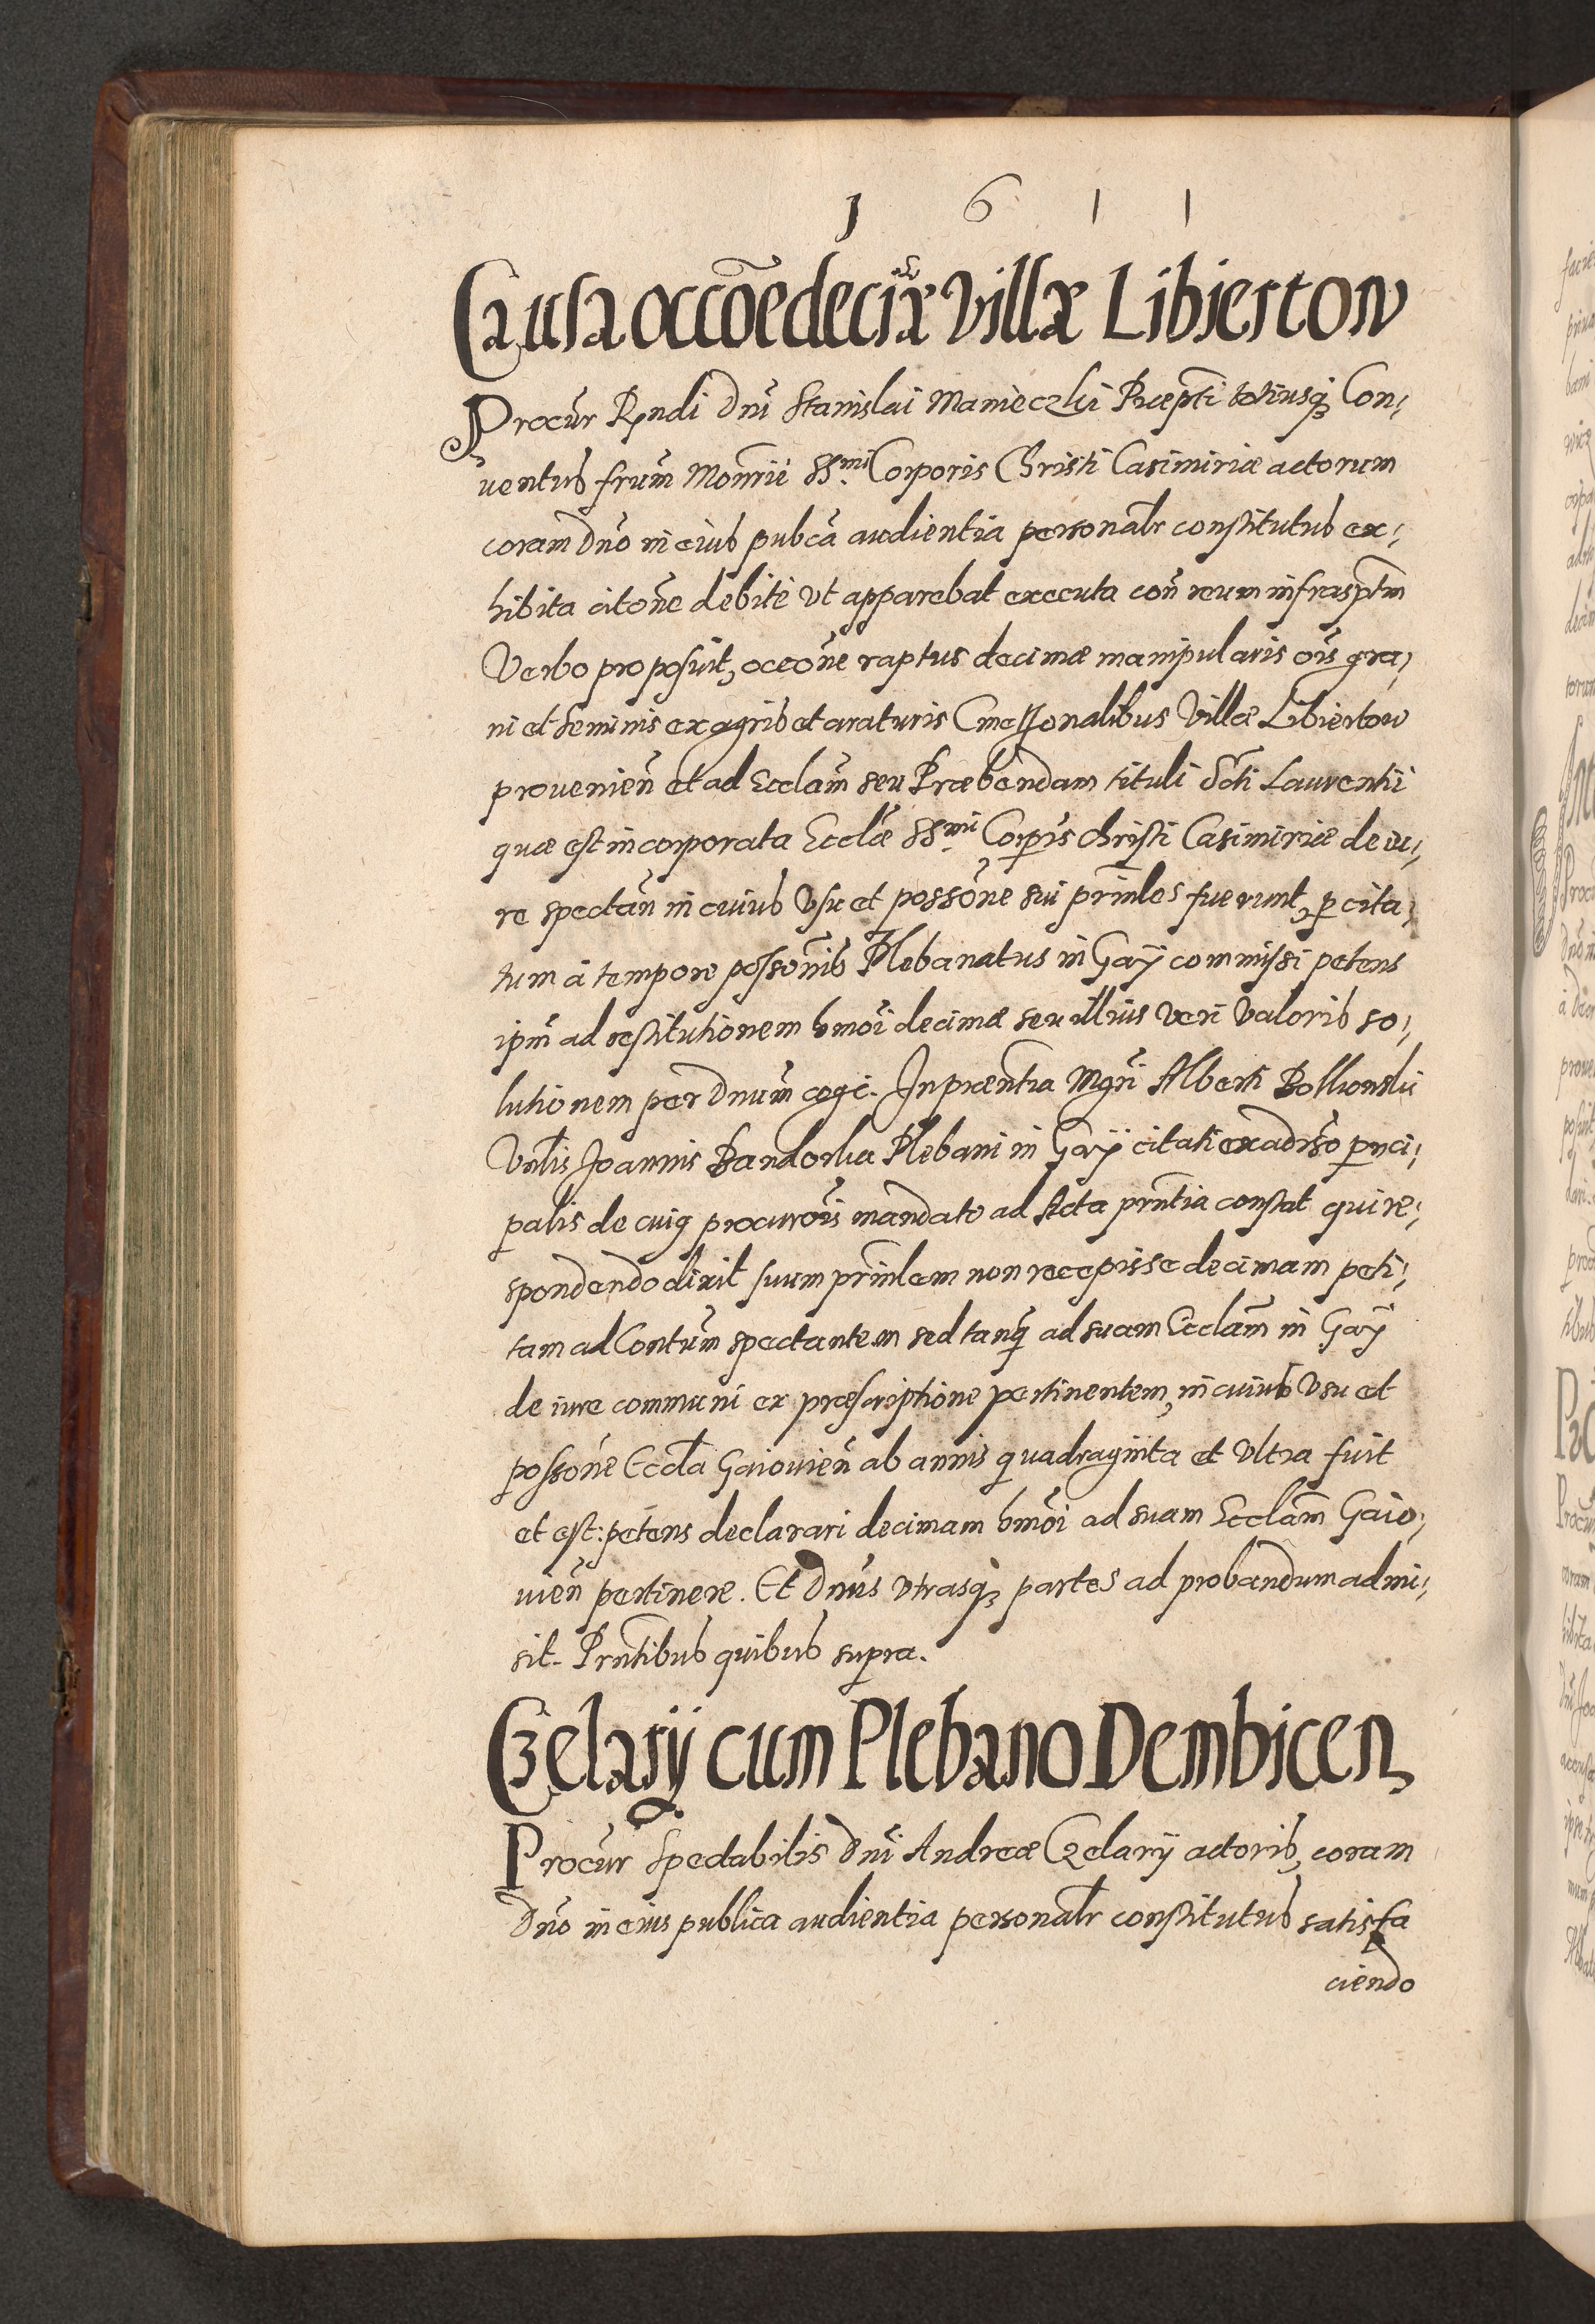 1 6 1 1
Causa occōe deciæ Villæ Libierton
Procūr Rndi Dnī Stanislai Manieczki Præptī totiusq₃ Con,
uentus frum̄ Mon̄rii SSmi Corporis Christi Casimiriæ actorum
coram Dn̄o in eius pubcā audientia personalr constitutus ex,
hibita citōne debitè vt apparebat executa con̄ reum infrasptm̄
Verbo proposuit, occōne raptus decimæ manipularis ōis gra,
ni et seminis ex agris et araturis Cmetſonalibus Villæ Libiertow
prouenien̄ et ad Ecclam̄ seu Præbendam tituli Scti Laurentii
quæ est incorporata Ecclæ SSmi Corpīs Christi Casimiriæ de iu,
re spectan̄ in cuius Vsu et possōne sui prīnles fuerunt, p cita,
tum à tempore possōnis Plebanatus in Gay commissi petens
ipm̄ ad restitutionem hmōi decimæ seu illius veri valoris so,
lutionem per Dnum̄ cogi. In præntia Mgrī Alberti Bolkonskii
Vnlis Joannis Bandorka Plebani in Gay citati ex adrso prnci,
palis de cuiq procurōis mandato ad Acta prntia constat qui re,
spondendo dixit suum prīnlem non recepisse decimam peti,
tam ad Contum̄ spectantem sed tanq̄ ad suam Ecclam̄ in Gay
de iure communi ex præscriptione pertinentem, in cuius Vsu et
possōne Eccla Gaiouien̄ ab annis quadraginta et Vltra fuit
et est: petens declarari decimam hmōi ad suam Ecclam̄ Gaio,
uien̄ pertinere. Et Dnūs vtrasq₃ partes ad probandum admi,
sit. Prntibus quibus supra.
Czelarij cum Plebano Dembicen
Procūr Spectabilis Dnī Andreæ Czelarij actoris, coram
Dn̄o in eius publica audientia personalr constitutus satisfa
ciendo